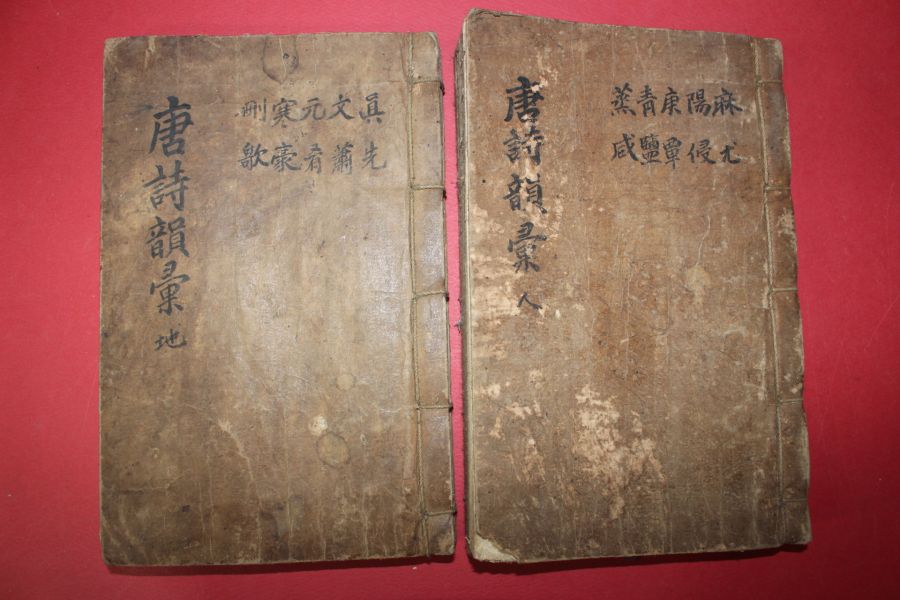 唐詩韻彙 地
眞先
文蕭
元肴
寒豪
刪歌
唐詩韻彙 人
麻尤
陽侵
庚覃
青鹽
蒸咸